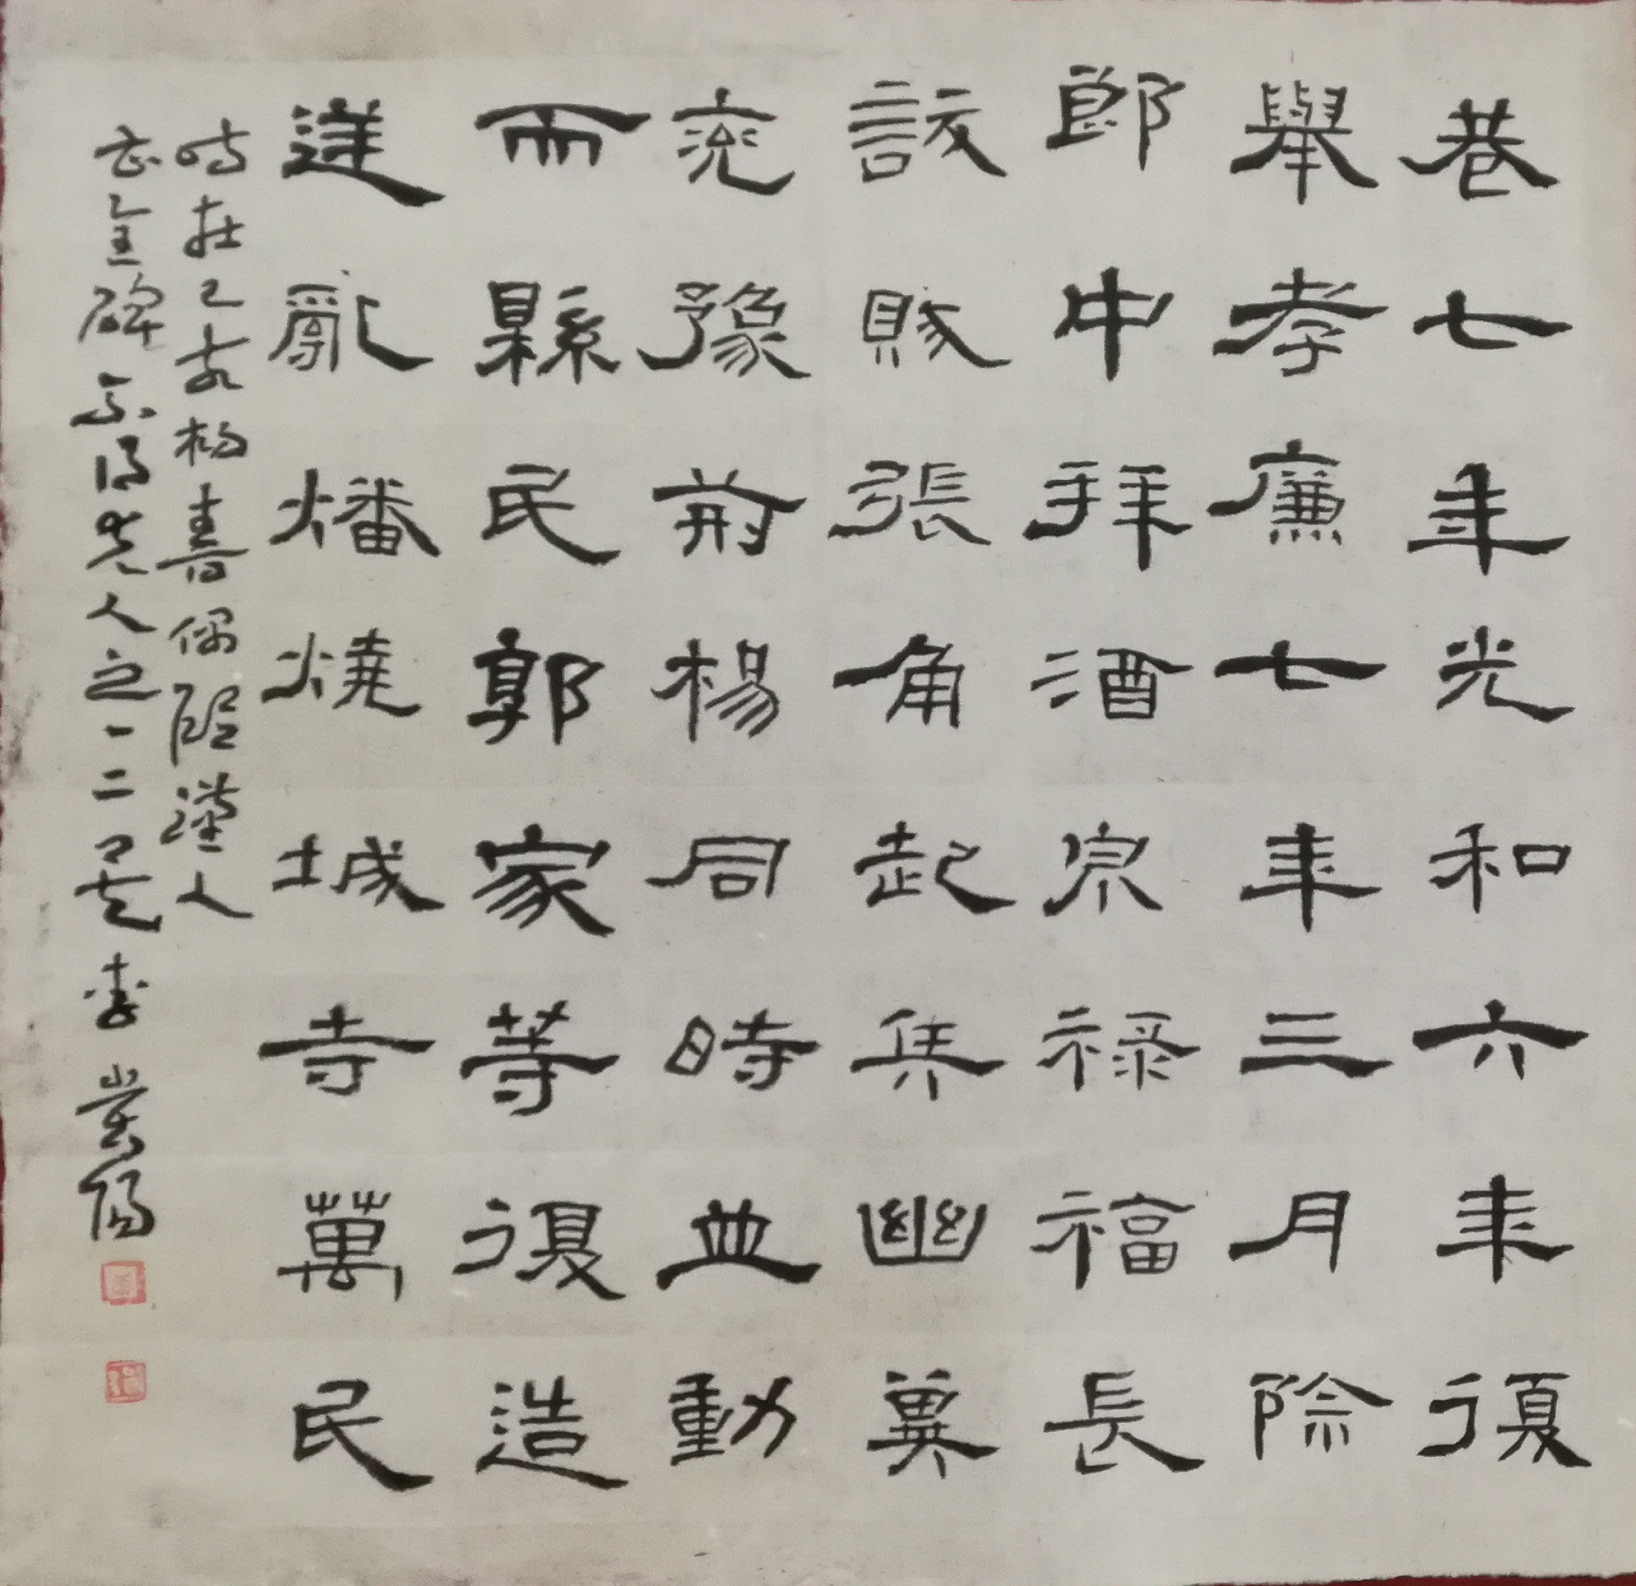 巷七年光和六年復
舉孝廉七年三月除
郎中拜酒泉祿福長
訞賊張角起兵幽冀
兖豫荊楊同時並動
而縣民郭家等復造
逆亂燔燒城寺萬民
時在乙亥楊春偶臨漢人
曹全碑不得先人之一二矣 李嵩陽